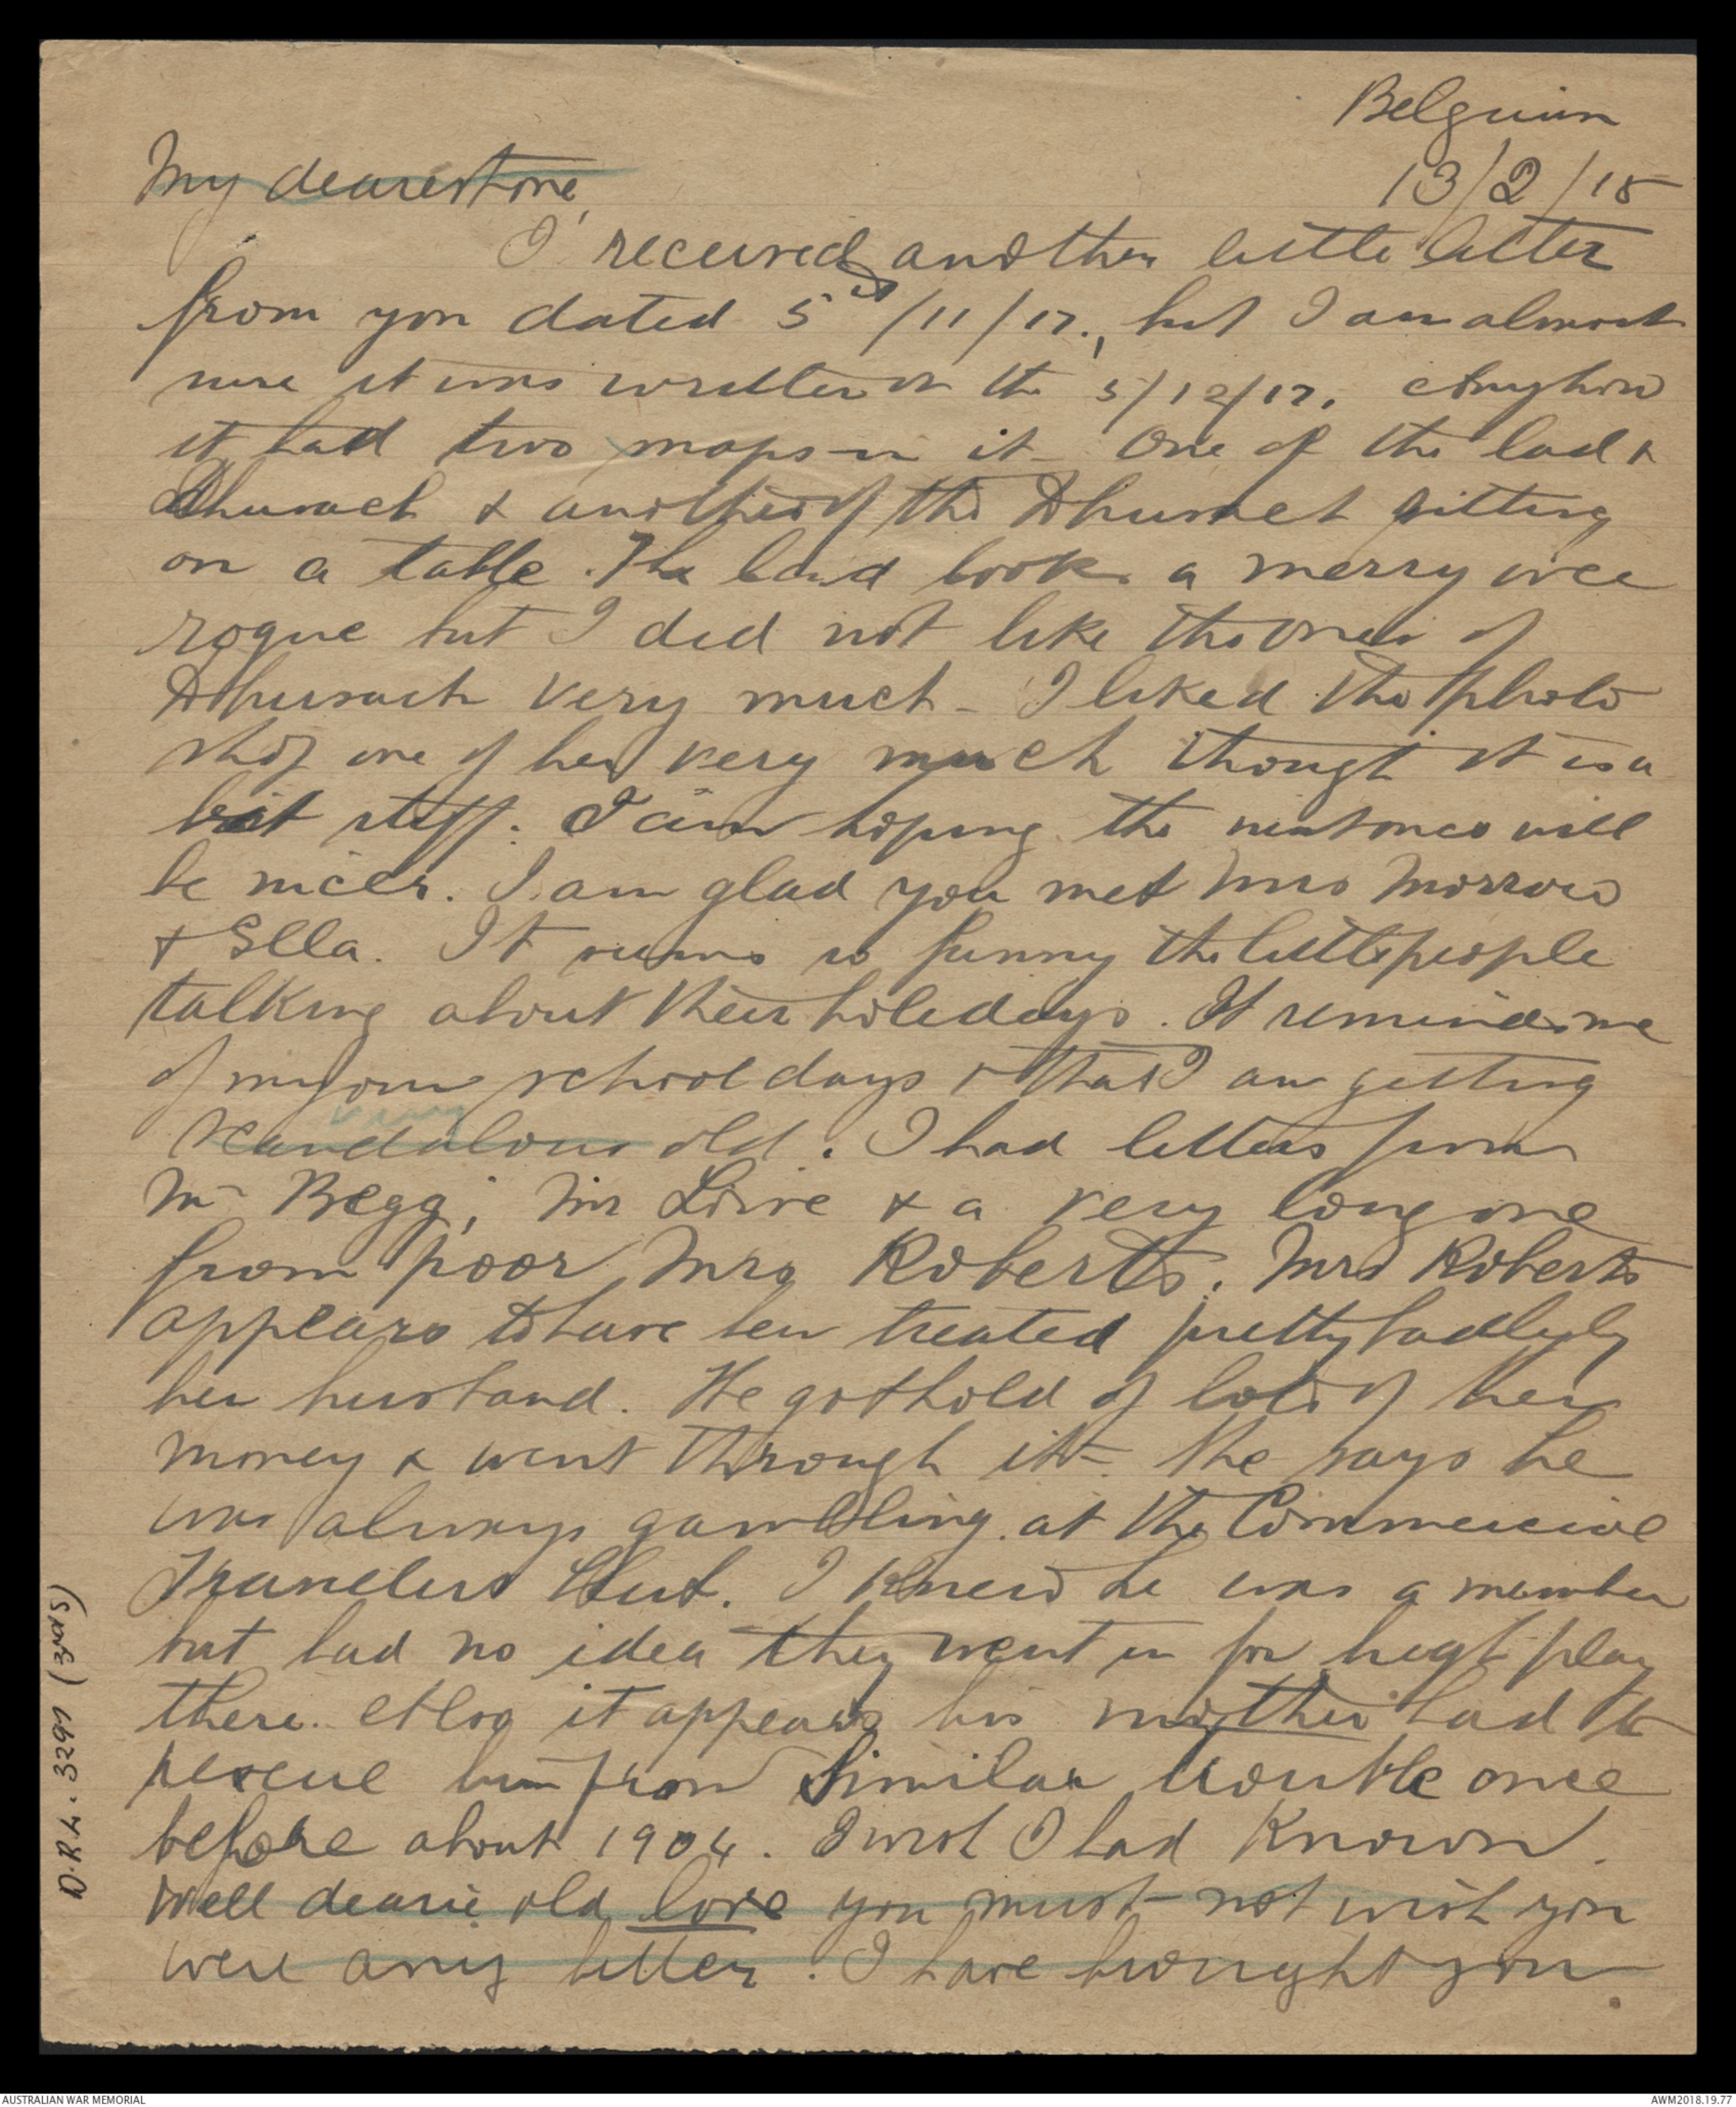 Belguim
13/2/18
My dearest one,
I received another little letter
from you dated 5th/11/17., but I am almost
sure it was written on the 5/12/17. Anyhow
it had two snaps in it. One of the lad &
Dhurach & another of the Dhurach sitting
on a table. The lad looks a merry wee
rogue but I did not like the ones of
Dhurach very much - I liked the photo
shop one of her very much though it is a
bit stiff. I am hoping the next ones will
be nicer. I am glad you met Mrs Morrow
& Ella. It seems so funny the little people
talking about their holidays. It reminds me
of my own school days & that I am getting
very
scandalous old. I had letters from
Mr Begg, Mr Lorre & a very long one
from poor Mrs Roberts. Mrs Roberts
appears to have been treated pretty badly by
her husband. He got hold of lots of her
money & went through it. She says he
was always gambling at the Commercial
Travellers Club. I knew he was a member
but had no idea they went in for high play
there. Also it appears his mother had to
rescue him from similar trouble once
before about 1904. I wish I had known.
Well dearie old love you must not wish you
were any better. I have brought you
D.R.L. 3297 (3rd S)
AUSTRALIAN WAR MEMORIAL
AWM2018.19.77